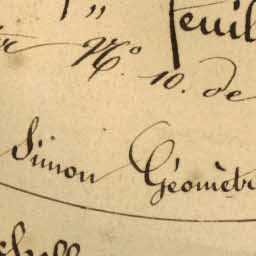 „ feuil
N.º 10. de
Simon Géomètr